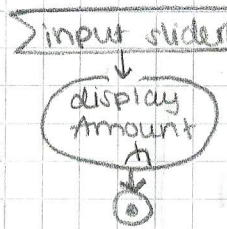 input slider
display
Amount